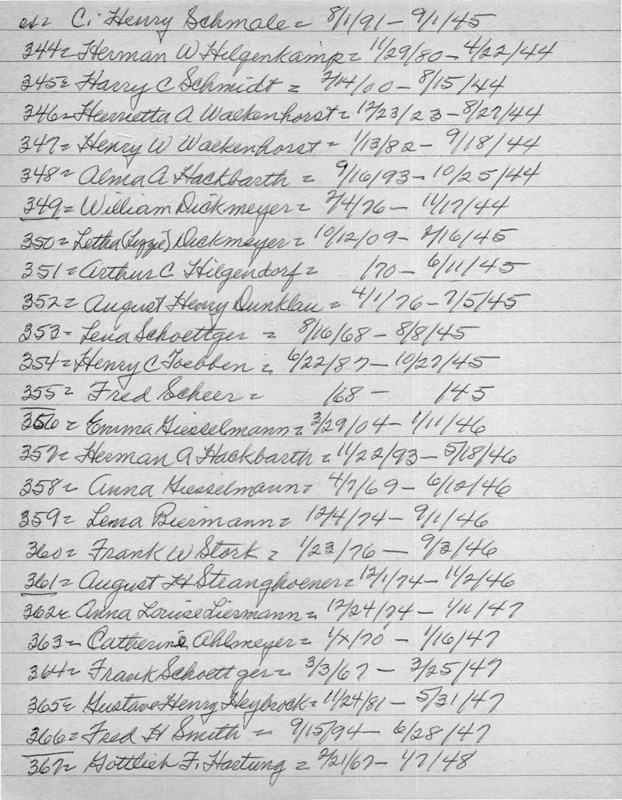 ex= C. Henry Schmale = 8/1/91 - 9/1/45
344= Herman W Helgenkamp = 11/29/80 - 4/22/44
345= Harry C Schmidt = 2/14/00 - 8/15/44
346= Henrietta A Walkenhorst = 12/23/23 - 8/27/44
347= Henry W Walkenhorst = 1/13/82 - 9/18/44
348= Alma A Hackbarth = 9/16/93 - 10/25/44
349= William Dickmeyer = 2/4/76 - 11/17/44
350= Letha (Lizzie) Dickmeyer = 10/12/09 - 2/16/45
351= Arthur C. Hilgendorf = /70 - 6/11/45
352= August Henry Dunklau = 4/1/76 - 7/5/45
353= Lena Schoettger = 8/16/68 - 8/8/45
354= Henry C Toebben = 6/22/87 - 10/27/45
355= Fred Scheer = /68 - /45
356= Emma Giesselmann = 3/29/04 - 1/11/46
357= Herman A Hackbarth = 11/22/93 - 5/18/46
358= Anna Giesselmann = 4/7/69 - 6/12/46
359= Lena Biermann = 12/4/74 - 9/1/46
360= Frank W Stork = 1/23/76 - 9/3/46
361= August H Stranghoener = 12/1/74 - 11/2/46
362= Anna Louise Liermann = 12/24/74 - 1/11/47
363= Catherine Ahlmeyer = 1/x/70 - 1/16/47
364= Frank Schoettger = 3/3/67 - 3/25/47
365= Gustave Henry Heybrock = 11/24/81 - 5/31/47
366= Fred H Smith = 9/15/94 - 6/28/47
367= Gottlieb F. Hartung = 2/21/67 - 1/7/48